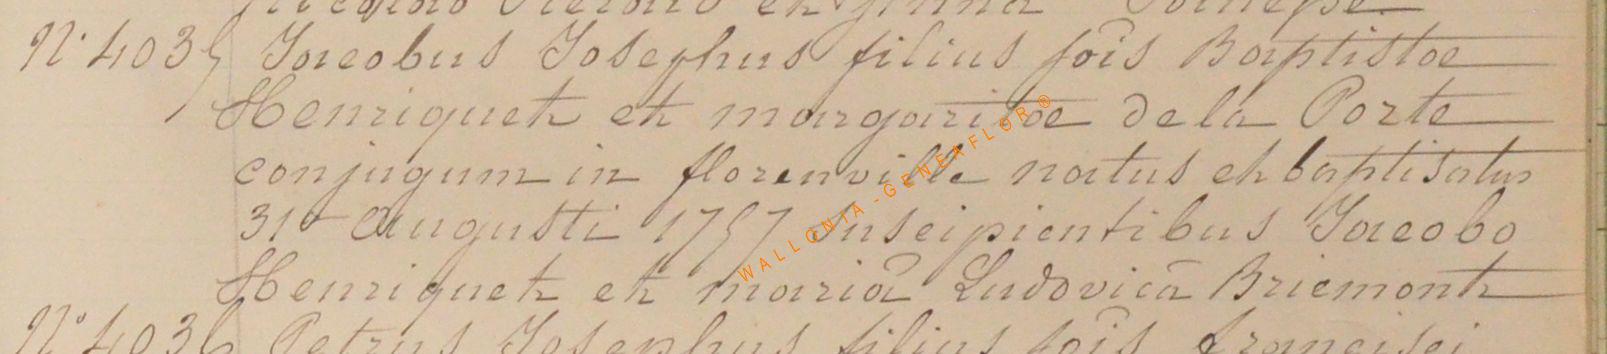 et
N° 4035 Jacobus Josephus filius jois Baptistae
Henriquet et margaritae de la Porte
conjugum in florenville natus et baptisatus
31a augusti 1757 suscipientibus Jacobo
Henriquet et mariâ Ludovicâ Briemont
N° 4036 Petrus Josephus filius jois francisci
WALLONIA-GENEAFLOR®